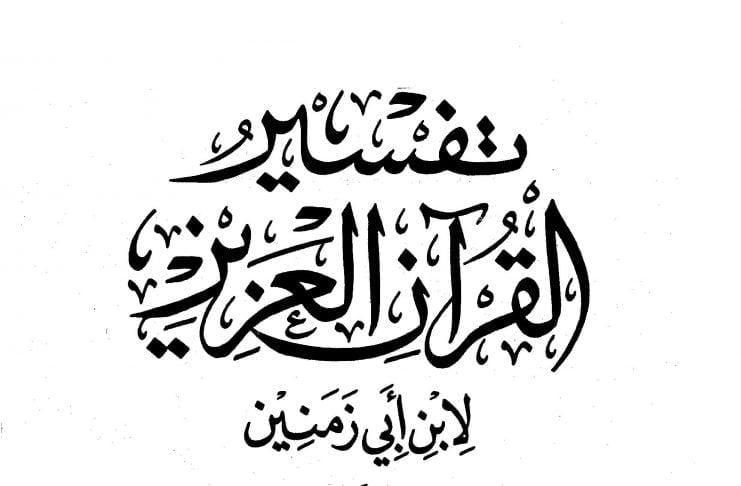 تفسير
القرآن العزيز
لِابْنِ أَبِي زَمَنِين